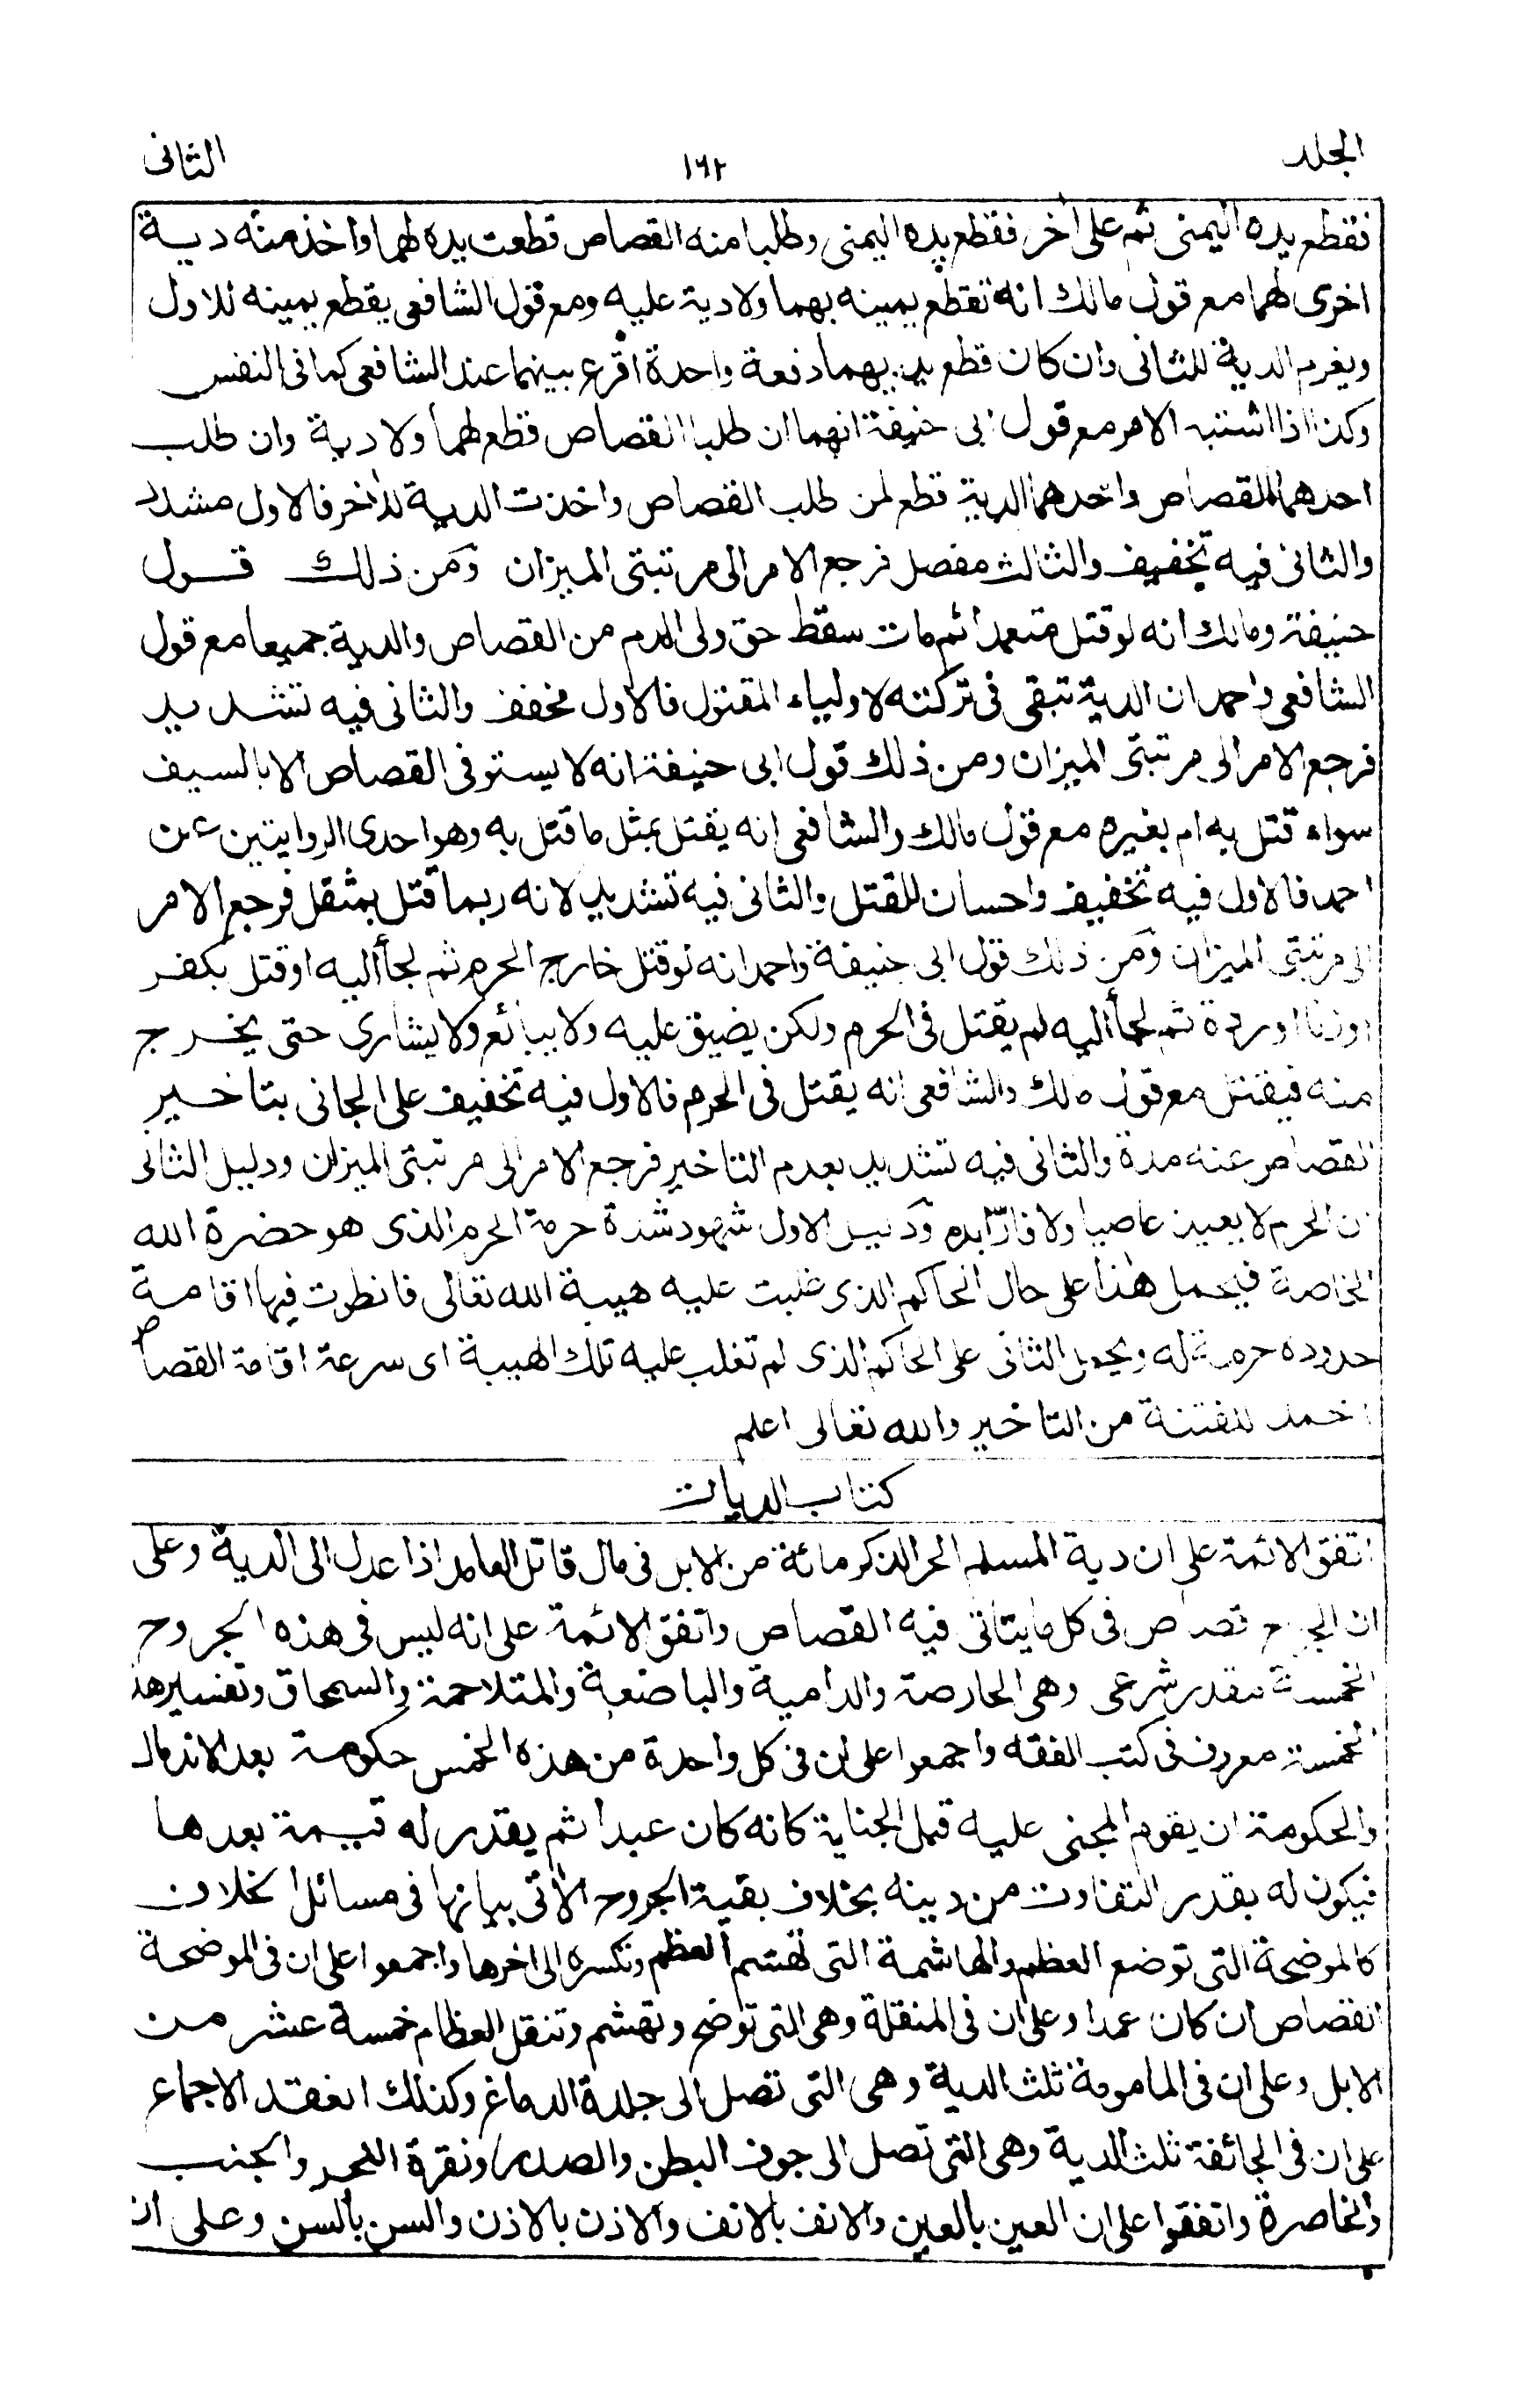 الجلد ١٦٢ الثانى
فقطع يده اليمنى ثم على اخر فقطع يده اليمنى وطلبا منه القصاص قطعت يده لهما واخذ منه دية
اخرى لهما مع قول مالك انه تقطع يمينه بهما ولادية عليه ومع قول الشافعى يقطع يمينه للاول
ويغرم الدية للثانى وان كان قطع يديهما دفعة واحدة اقرع بينهما عند الشافعى كما فى النفس
وكذا اذا اشتبه الامر مع قول ابى حنيفة انهما ان طلبا القصاص قطع لهما ولا دية وان طلب
احدهما القصاص واحدهما الدية قطع لمن طلب القصاص واخذت الدية للاخر فالاول مشدد
والثانى فيه تخفيف والثالث مفصل فرجع الامر الى مرتبتى الميزان ومن ذلك قول
حنيفة ومالك انه لو قتل متعمدا ثم مات سقط حق ولى الدم من القصاص والدية جميعا مع قول
الشافعى واحمد ان الدية تبقى فى تركته لاولياء المقتول فالاول مخفف والثانى فيه تشديد
فرجع الامر الى مرتبتى الميزان ومن ذلك قول ابى حنيفة انه لا يستوفى القصاص الا بالسيف
سواء قتل به ام بغيره مع قول مالك والشافعى انه يقتل بمثل ما قتل به وهو احدى الروايتين عن
احمد فالاول فيه تخفيف واحسان للقتل والثانى فيه تشديد لانه ربما قتل بمثقل فرجع الامر
الى مرتبتى الميزان ومن ذلك قول ابى حنيفة واحمد انه لو قتل خارج الحرم ثم لجأ اليه او قتل بكفر
او زنا او ردة ثم لجأ اليه لم يقتل فى الحرم ولكن يضيق عليه ولا يبائع ولا يشارى حتى يخرج
منه فيقتل مع قول مالك والشافعى انه يقتل فى الحرم فالاول فيه تخفيف على الجانى بتاخير
القصاص عنه مدة والثانى فيه تشديد بعدم التاخير فرجع الامر الى مرتبتى الميزان ودليل الثانى
ان الحرم لا يعيذ عاصيا ولا فارّا بدم ودليل الاول شهود شدة حرمة الحرم الذى هو حضرة الله
الخاصة فيحمل هذا على حال الحاكم الذى غلبت عليه هيبة الله تعالى فانطوت فيها اقامة
حدوده حرمة له ويحمل الثانى على الحاكم الذى لم تغلب عليه تلك الهيبة اى سرعة اقامة القصاص
اخمد للفتنة من التاخير والله تعالى اعلم
كتاب الديات
اتفق الائمة على ان دية المسلم الحر الذكر مائة من الابل فى مال قاتل العامد اذا عدل الى الدية وعلى
ان الجروح قصاص فى كل ما يتاتى فيه القصاص واتفق الائمة على انه ليس فى هذه الجروح
الخمسة مقدر شرعى وهى الحارصة والدامية والباضعة والمتلاحمة والسمحاق وتفسير هذه
الخمسة معروف فى كتب الفقه واجمعوا على ان فى كل واحدة من هذه الخمس حكومة بعد الاندمال
والحكومة ان يقوم المجنى عليه قبل الجناية كانه كان عبدا ثم يقدر له قيمة بعدها
فيكون له بقدر التفاوت من دينه بخلاف بقية الجروح الاتى بيانها فى مسائل الخلاف
كالموضحة التى توضع العظم والهاشمة التى تهشم العظم وتكسره الى اخرها واجمعوا على ان فى الموضحة
القصاص ان كان عمدا وعلى ان فى المنقلة وهى التى توضح وتهشم وتنقل العظام خمسة عشر من
الابل وعلى ان فى المامومة ثلث الدية وهى التى تصل الى جلدة الدماغ وكذلك انعقد الاجماع
على ان فى الجائفة ثلث الدية وهى التى تصل الى جوف البطن والصدر ونقرة النحر والجنب
والخاصرة واتفقوا على ان العين بالعين والانف بالانف والاذن بالاذن والسن بالسن وعلى ان